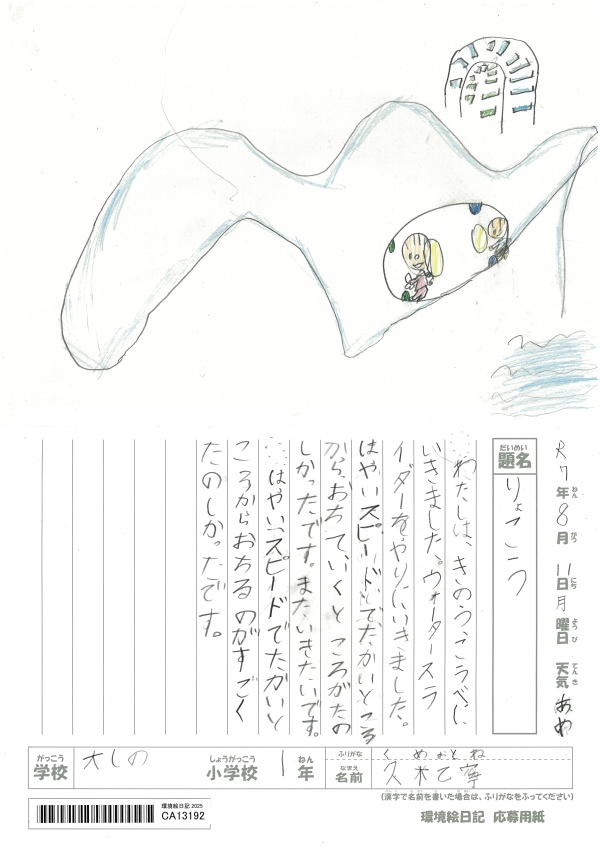 R7年ねん8月がつ11日にち月曜日ようび 天気てんきあめ
題名だいめい りょこう
わたしは、きのう、こうべに
いきました。ウォータースラ
イダーをやりにいきました。
はやいスピードで、たかいところ
から、おちていくところがたの
しかったです。またいきたいです。
はやい、スピードでたかいと
ころからおちるのがすごく
たのしかったです。
がっこう しょうがっこう ねん ふりがな くめおとね
学校 大しの 小学校 1年 なまえ 名前 久米乙寧
(漢字で名前を書いた場合は、ふりがなをふってください)
環境絵日記 2025
CA13192
環境絵日記 応募用紙